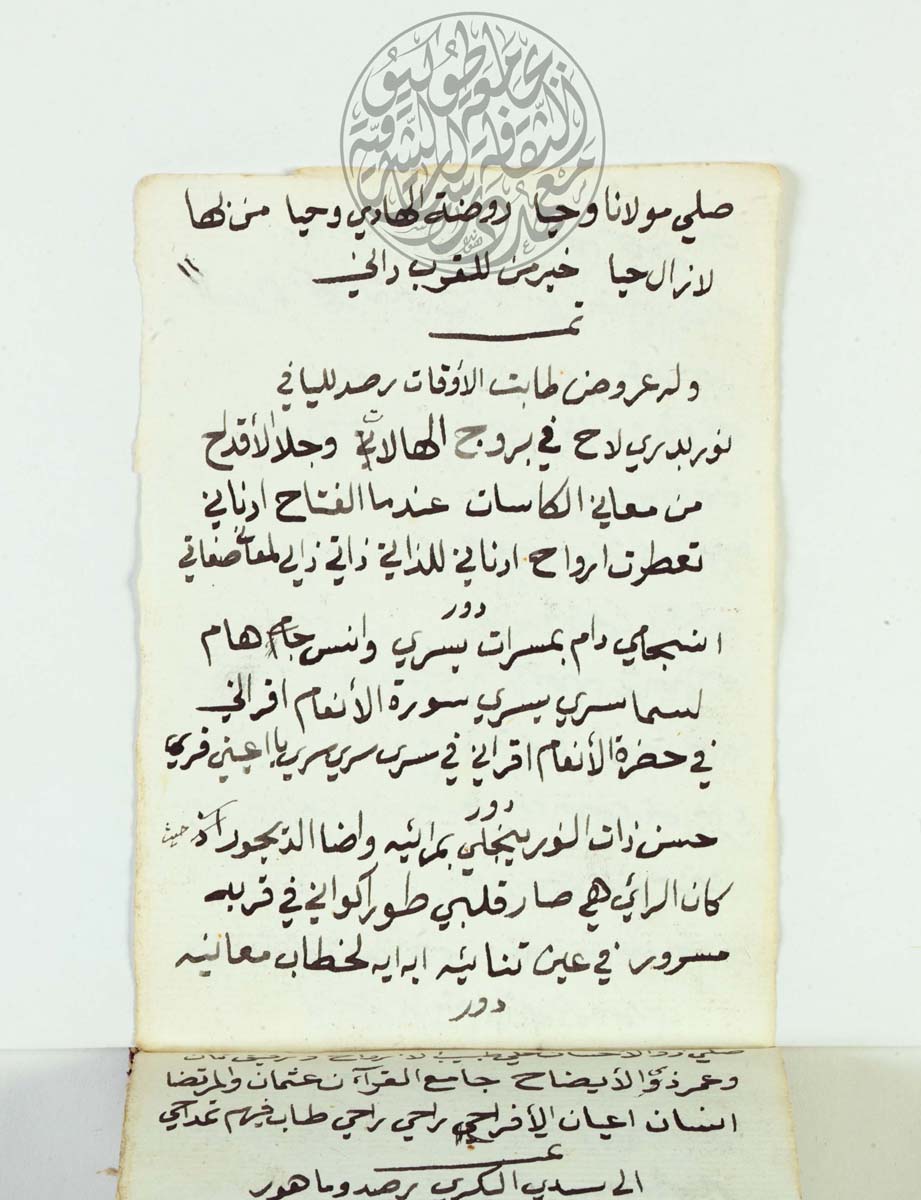 صلي مولانا وحيا روضة الهادي وحيا من لها
لا نزال حيا خير من للقرب داني
تمت
وله عروض طابت الأوقات رصد لليافي
نور بدري لاح في بروج الهالات وجلا الأقداح
من معاني الكاسات عندما الفتاح ادناني
تعطرت ارواح ادناني للذاتي ذاتي ذاتي لمعات صفاتي
دور
انسجامي دام بمسرات يسري وانس جام هام
لسما سري يسري سورة الأنعام اقراني
في حضرة الأنعام اقراني في سري سري سري يا عيني قري
دور
حسن ذات النور ينجلي بمرائيه واضا الديجور اذ حيث
كان الرائي هي صار قلبي طور اكواني في قربه
مسرور في عين تنائيه ايه ايه لخطاب معانيه
دور
وعمر ذي الأيضاح جامع القرآن عثمان والمرتضا
انسان اعيان الأفراحي راحي راحي طاب فيهم تمداحي
الى سيدي البكري رصد وماهور